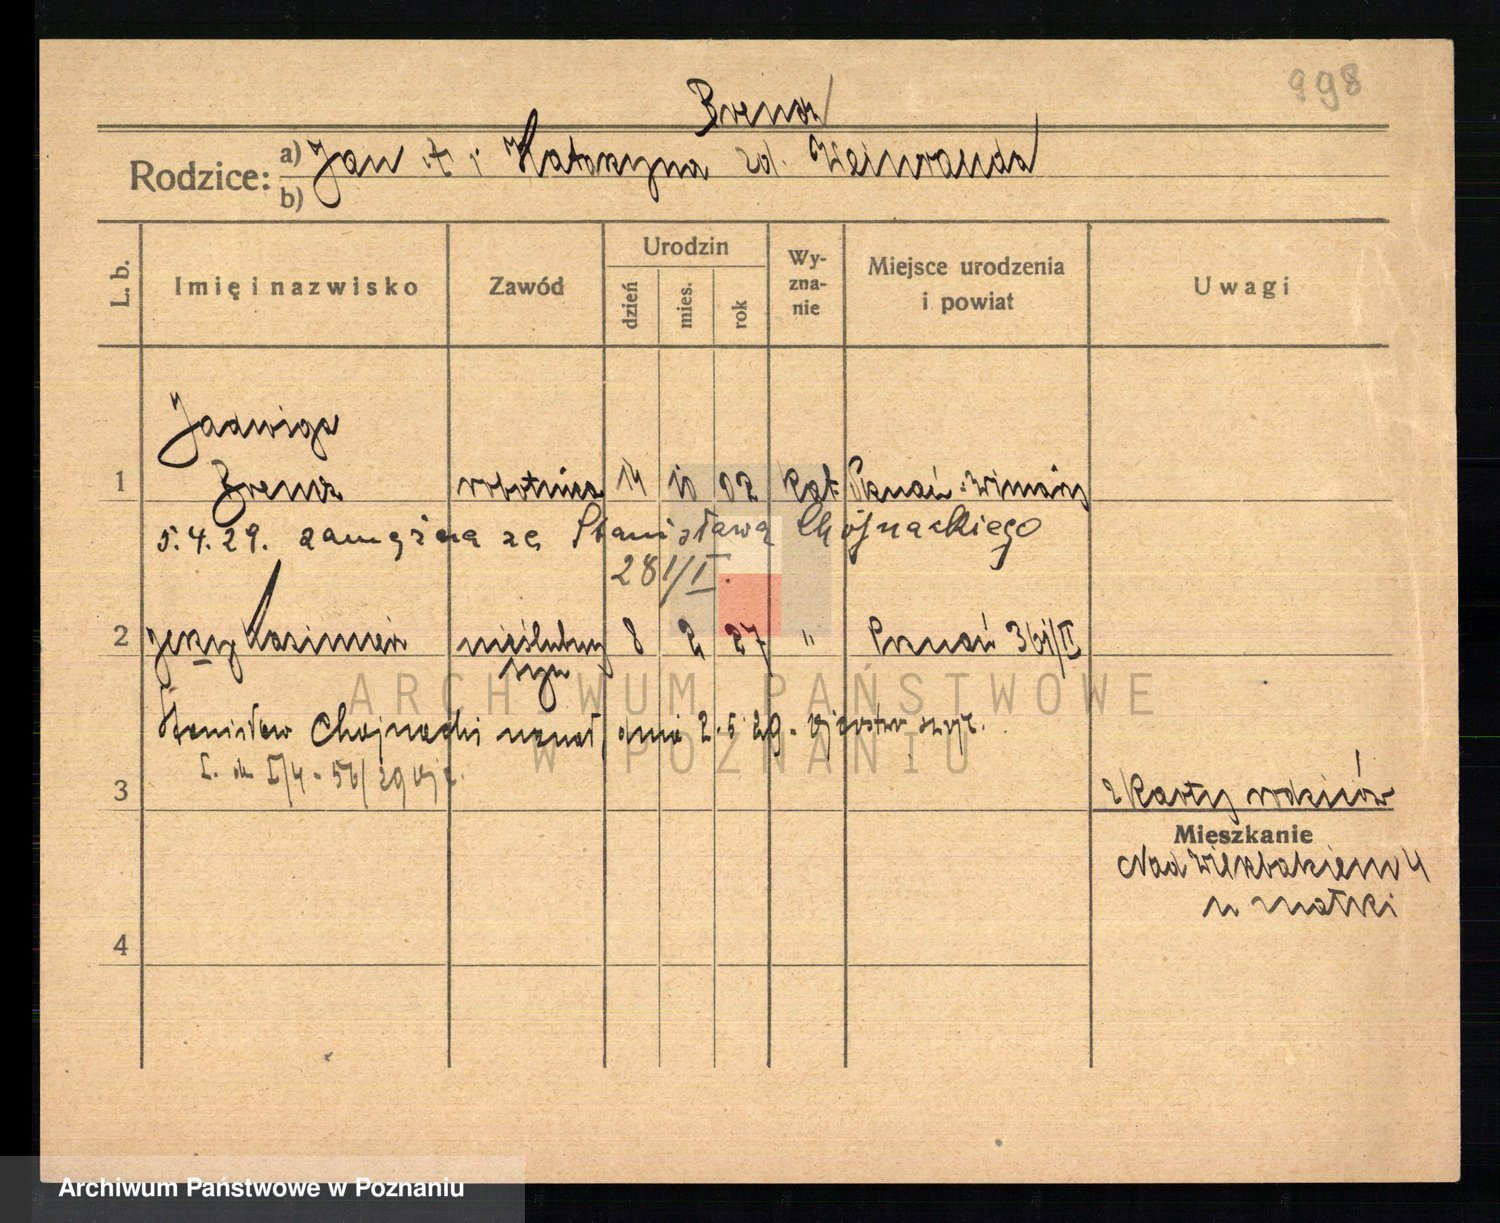 998
Brenz
Rodzice: a) Jan i Katarzyna zd. Weinranda
b)
L. b.
Imię i nazwisko
Zawód
Urodzin
dzień
mies.
rok
Wy-
zna-
nie
Miejsce urodzenia
i powiat
Uwagi
Jadwiga
1 Brenz robotnica 14 10 02 kat. Poznań-Winiary
5.4.29. zamężna ze Stanisławą Chojnackiego
281/I.
2 Jerzy Kazimierz nieślubny 8 2 27 " Poznań 361/II
syn
Stanisław Chojnacki uznał dnia 2.5.29.
3
z karty rodziców
Mieszkanie
Nad Wierzbakiem 4
u matki
4
ARCHIWUM PAŃSTWOWE
W POZNANIU
Archiwum Państwowe w Poznaniu